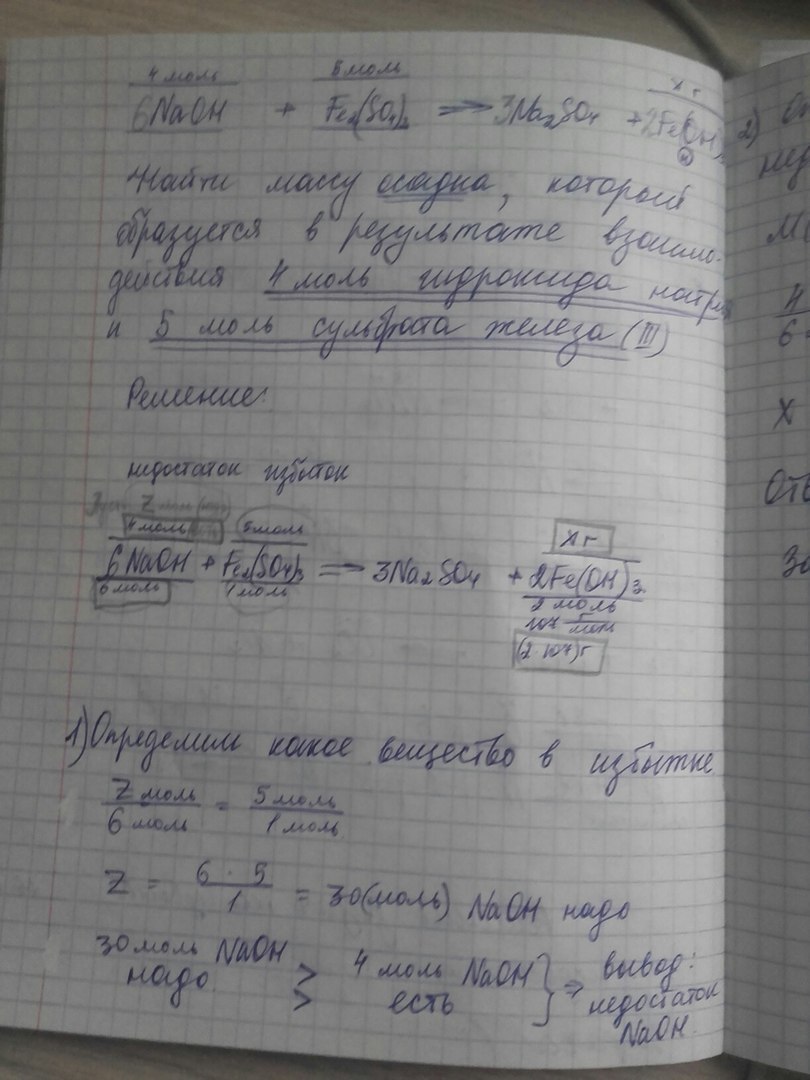 4 моль 5 моль x г
6NaOH + Fe₂(SO₄)₃ ⟹ 3Na₂SO₄ + 2Fe(OH)
Найти массу осадка, который
образуется в результате взаимо-
действия 4 моль гидроксида натрия
и 5 моль сульфата железа (III)
Решение:
недостаток избыток
Z
4 моль 5 моль x г
6NaOH + Fe₂(SO₄)₃ ⟹ 3Na₂SO₄ + 2Fe(OH)₃
6 моль 1 моль 2 моль
107 г/моль
(2·107) г
1) Определим какое вещество в избытке
Z моль / 6 моль = 5 моль / 1 моль
Z = 6 · 5 / 1 = 30 (моль) NaOH надо
30 моль NaOH > 4 моль NaOH } ⇒ вывод:
надо > есть недостаток
NaOH
2)
4
6
X